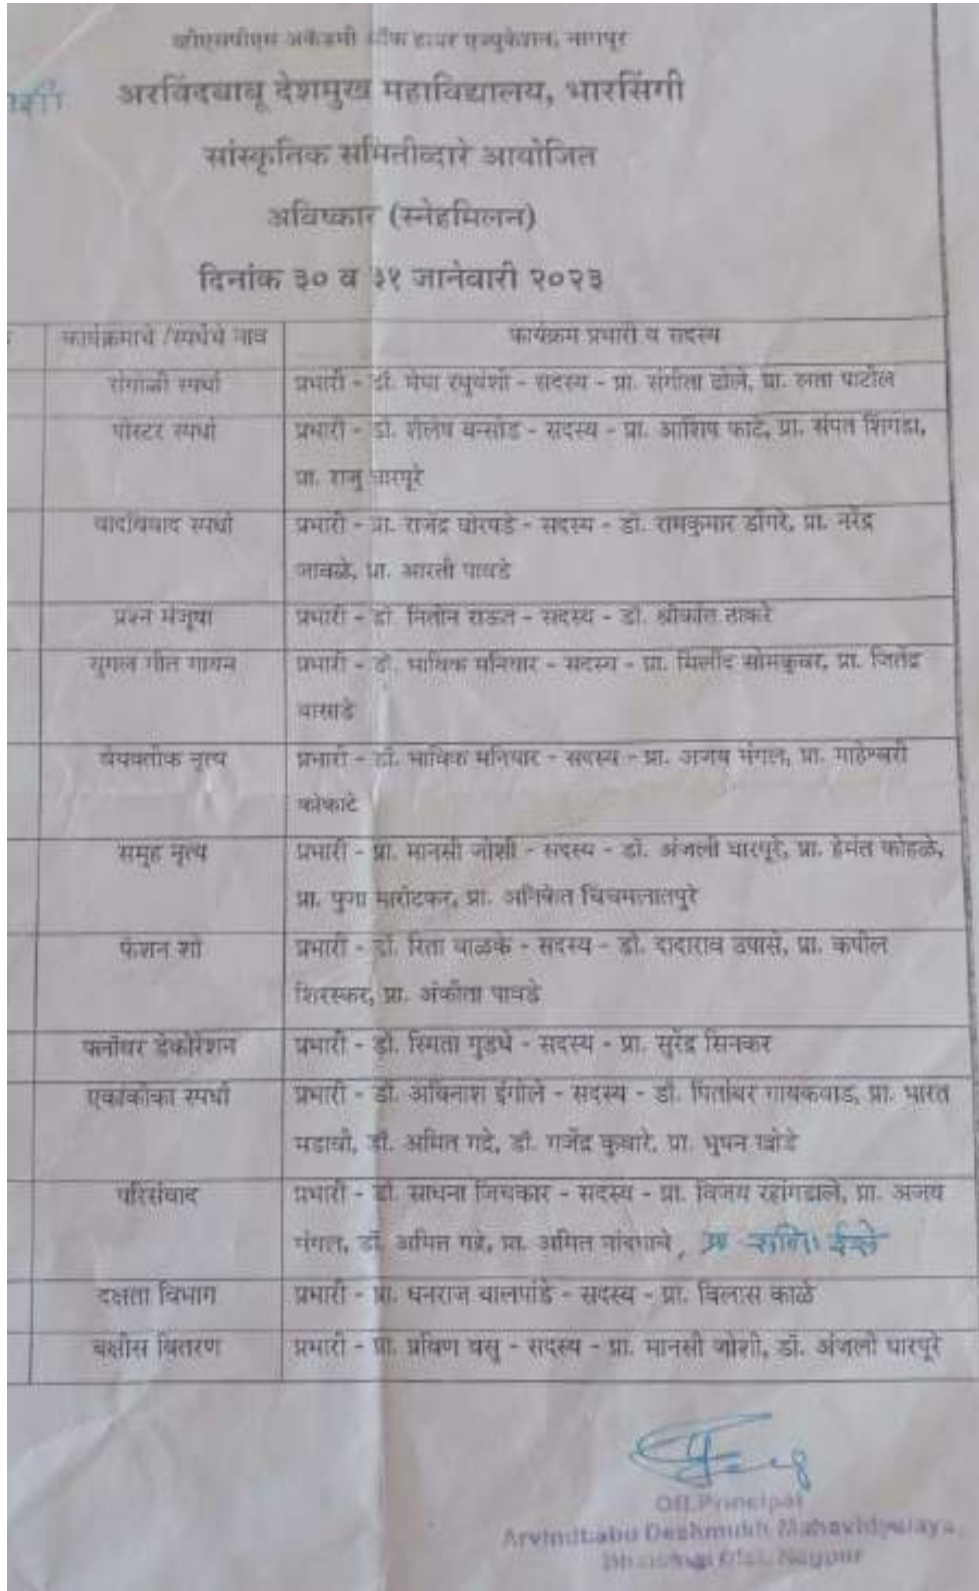 व्हीएसपीएम अकॅडमी ऑफ हायर एज्युकेशन, नागपुर
अरविंदबाबू देशमुख महाविद्यालय, भारसिंगी
सांस्कृतिक समितीव्दारे आयोजित
अविष्कार (स्नेहमिलन)
दिनांक ३० व ३१ जानेवारी २०२३
कार्यक्रमाचे /स्पर्धेचे नाव कार्यक्रम प्रभारी व सदस्य
रांगोळी स्पर्धा प्रभारी - डॉ. मेघा रघुवंशी - सदस्य - प्रा. संगीता ढोले, प्रा. लता पाटील
पोस्टर स्पर्धा प्रभारी - डॉ. शैलेष बन्सोड - सदस्य - प्रा. आशिष काटे, प्रा. संपत शिंगडा,
प्रा. राजु धारपूरे
वादविवाद स्पर्धा प्रभारी - प्रा. राजेंद्र घोरपडे - सदस्य - डॉ. रामकुमार डोंगरे, प्रा. नरेंद्र
जावळे, प्रा. आरती पावडे
प्रश्न मंजूषा प्रभारी - डॉ. नितीन राऊत - सदस्य - डॉ. श्रीकांत ठाकरे
युगल गीत गायन प्रभारी - डॉ. भाविक मनियार - सदस्य - प्रा. मिलींद सोमकुवर, प्रा. जितेंद्र
वासाडे
वैयक्तीक नृत्य प्रभारी - डॉ. भाविक मनियार - सदस्य - प्रा. अजय मंगल, प्रा. माहेश्वरी
कोकाटे
समूह नृत्य प्रभारी - प्रा. मानसी जोशी - सदस्य - डॉ. अंजली धारपूरे, प्रा. हेमंत कोहळे,
प्रा. पुजा मारोटकर, प्रा. अनिकेत चिचमलातपुरे
फॅशन शो प्रभारी - डॉ. रिता वाळके - सदस्य - डॉ. दादाराव उपासे, प्रा. कपील
शिरस्कर, प्रा. अंकीता पावडे
फ्लॉवर डेकोरेशन प्रभारी - डॉ. स्मिता गुडधे - सदस्य - प्रा. सुरेंद्र सिनकर
एकांकीका स्पर्धा प्रभारी - डॉ. अविनाश इंगोले - सदस्य - डॉ. पितांबर गायकवाड, प्रा. भारत
मडावी, डॉ. अमित गद्रे, डॉ. गजेंद्र कुवारे, प्रा. भुषन खोडे
परिसंवाद प्रभारी - डॉ. साधना जिचकार - सदस्य - प्रा. विजय रहांगडाले, प्रा. अजय
मंगल, डॉ. अमित गद्रे, प्रा. अमित नांदगावे, प्रा
दक्षता विभाग प्रभारी - प्रा. धनराज वालपांडे - सदस्य - प्रा. विलास काळे
बक्षीस वितरण प्रभारी - प्रा. प्रविण वसु - सदस्य - प्रा. मानसी जोशी, डॉ. अंजली धारपूरे
Off.Principal
Arvindbabu Deshmukh Mahavidyalaya,
Dist. Nagpur